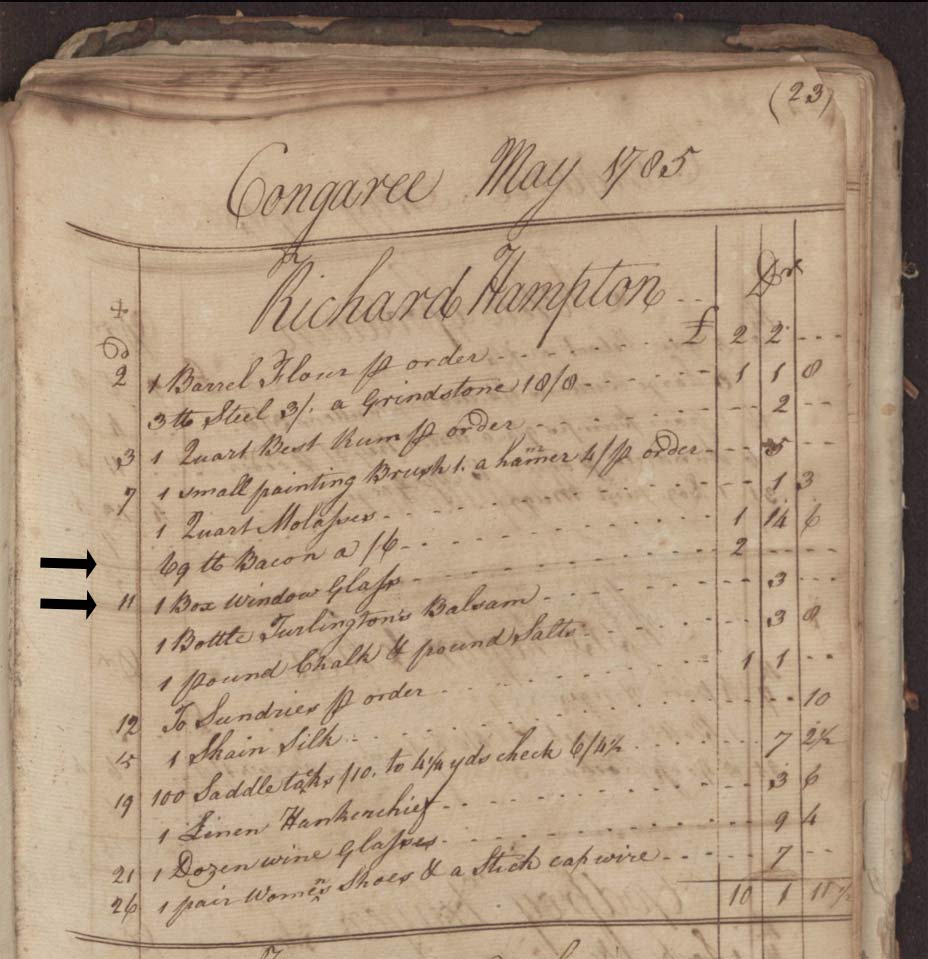 (23)
Congaree May 1785
Richard Hampton Dr
2 1 Barrel Flour ⅌ order £ 2 2
3 ℔ Steel 3/. a Grindstone 18/8 1 1 8
3 1 Quart Best Rum ⅌ order 2
7 1 small painting Brush 1. a hamer 4/ ⅌ order 5
1 Quart Molasses 1 3
69 ℔ Bacon a /6 1 14 6
11 1 Box Window Glass 2
1 Bottle Turlington's Balsam 3
1 pound Chalk & pound Salts 3 8
12 To Sundries ⅌ order 1 1
15 1 Skain Silk 10
19 100 Saddle tacks /10. to 4¼ yds check 6/4½ 7 2½
1 Linen Hankerchief 3 6
21 1 Dozen wine Glasses 9 4
26 1 pair Womens Shoes & a Stick cap wire 7
10 1 11½